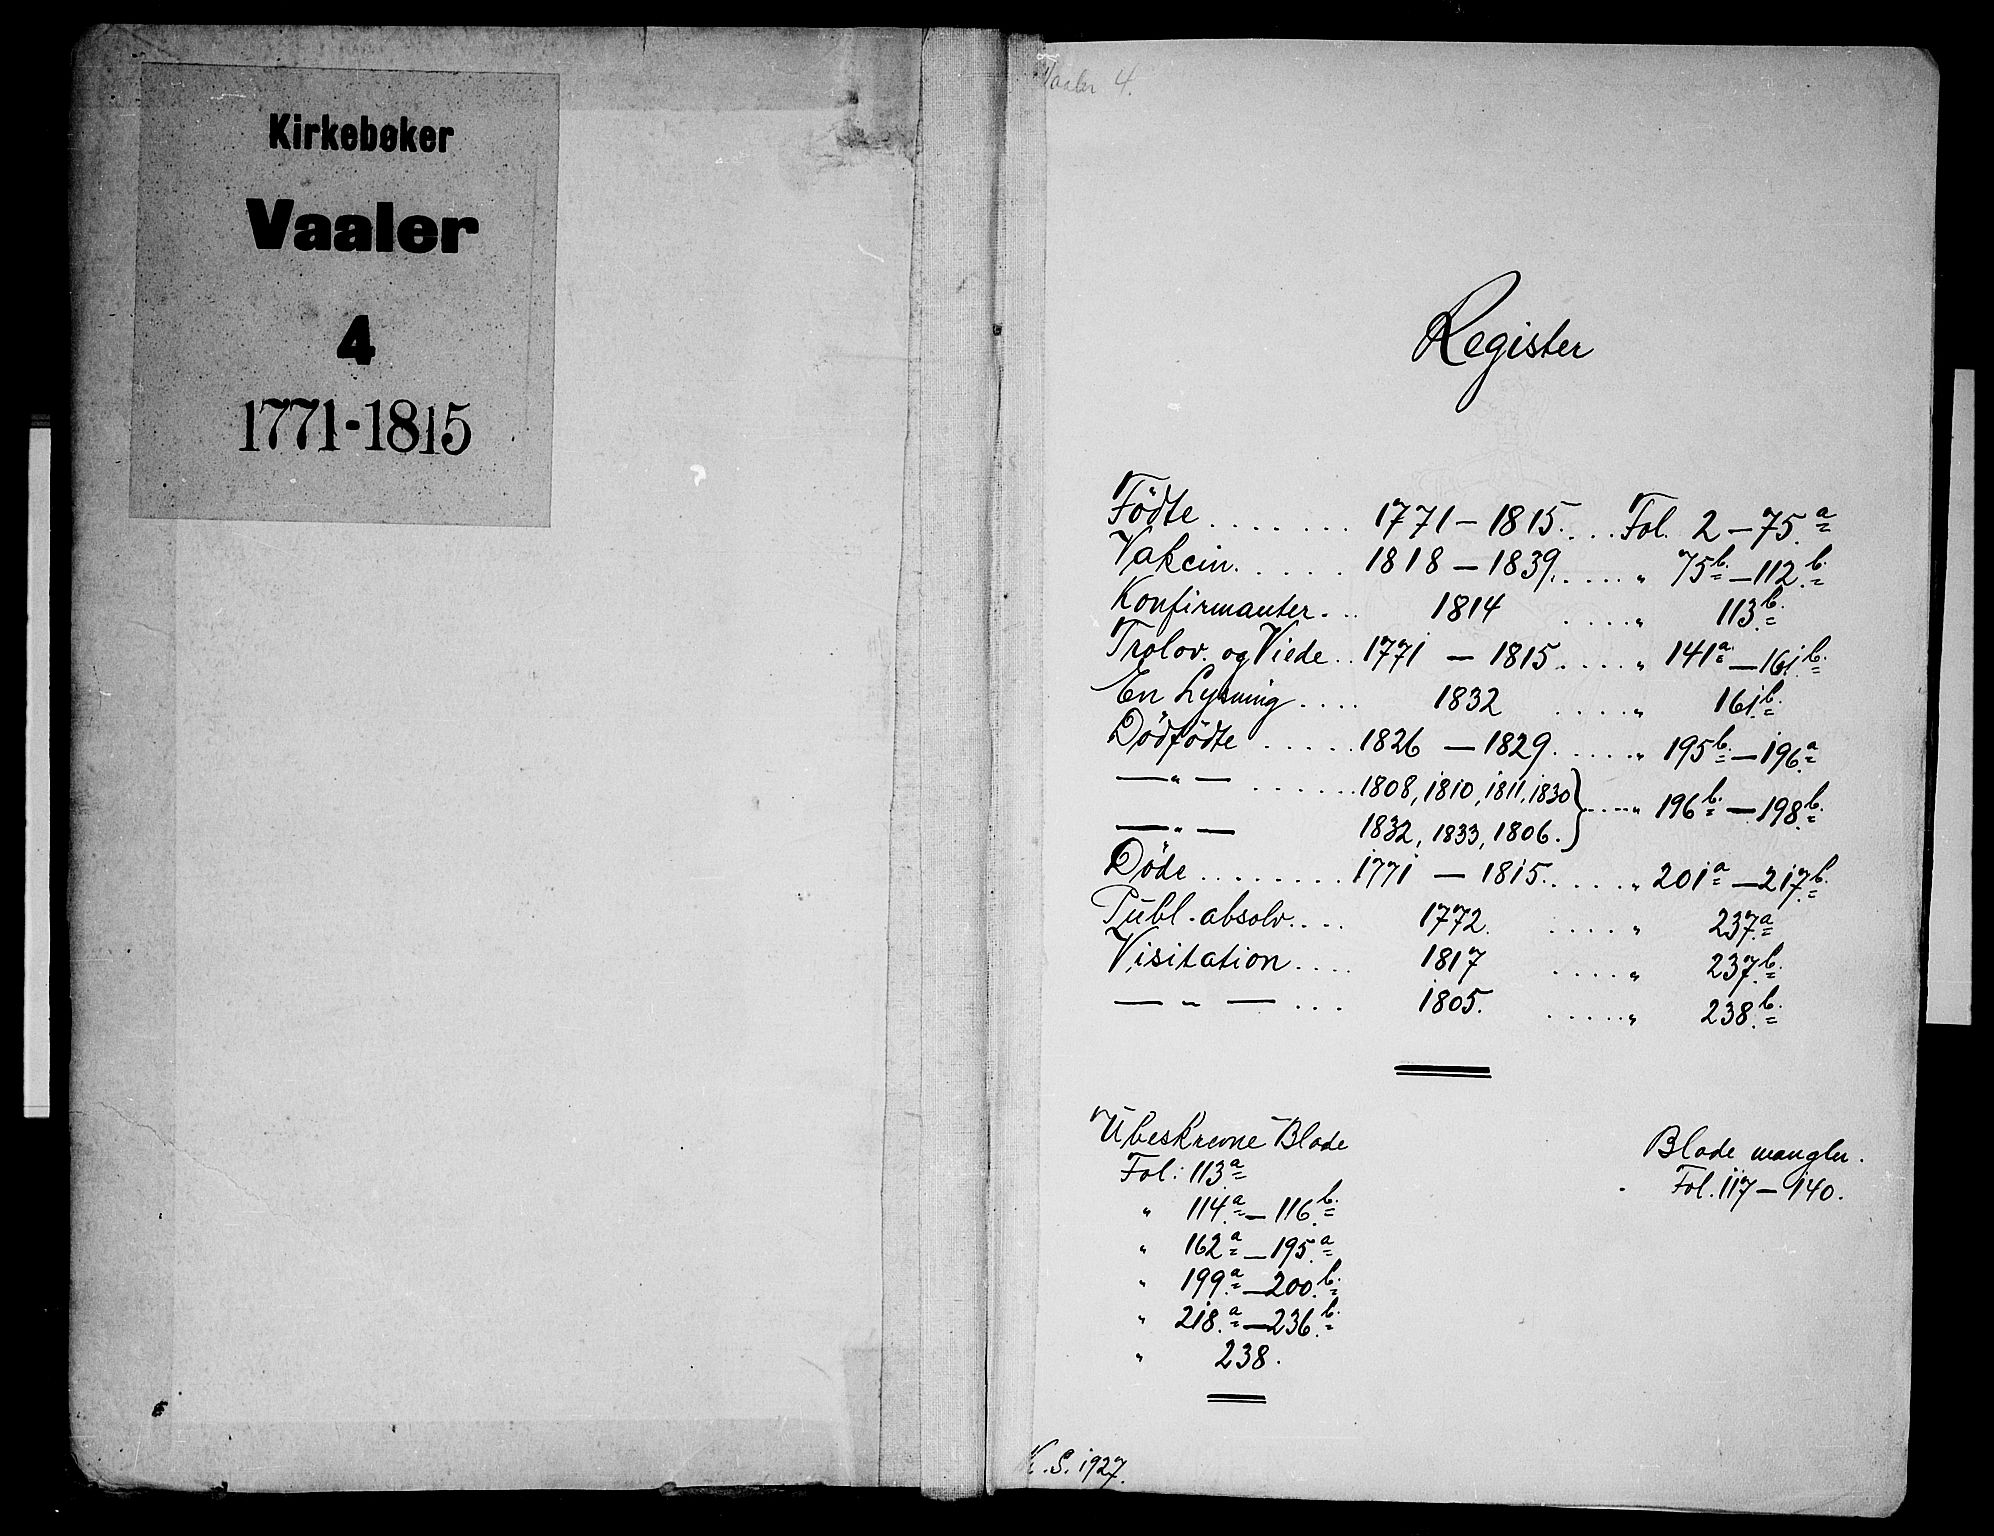 Kirkebøker
Vaaler
4
1771-1815
Vaaler 4.
Register
Födte ........ 1771 – 1815. .... Fol. 2 – 75.a
Vakcin. ..... 1818 – 1839. ..... " 75b. – 112.b.
Konfirmanter. .. 1814 ..... " 113.b.
Trolov. og Viede .. 1771 – 1815. .... " 141a – 161b.
En Lysning .... 1832 ..... " 161b.
Dödfödte ..... 1826 – 1829. .... " 195b. – 196.a
— " — ...... 1808, 1810, 1811, 1830 } ..... " 196b. – 198b.
— " — 1832, 1833, 1806.
Döde ........ 1771 – 1815. .... " 201a – 217.b.
Publ. absolv. ... 1772. ..... " 237.a
Visitation .... 1817 ..... " 237.b.
— " — ... 1805. ..... " 238.b.
Ubeskrevne Blade
Fol: 113a
" 114.a – 116.b.
" 162a – 195.a
" 199.a – 200.b.
" 218.a – 236.b.
" 238.
Blade mangler.
Fol. 117 – 140.
K.S. 1927.